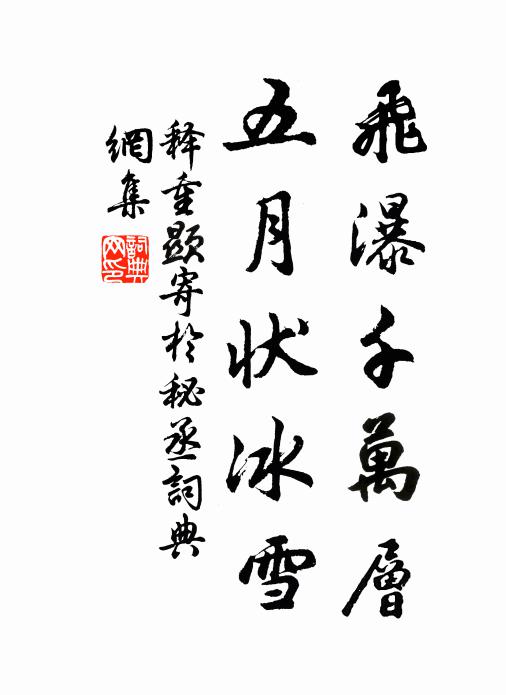 飛瀑千萬層
五月状冰雪
释重顯寄於秘丞詞典
網集
詞典
网印